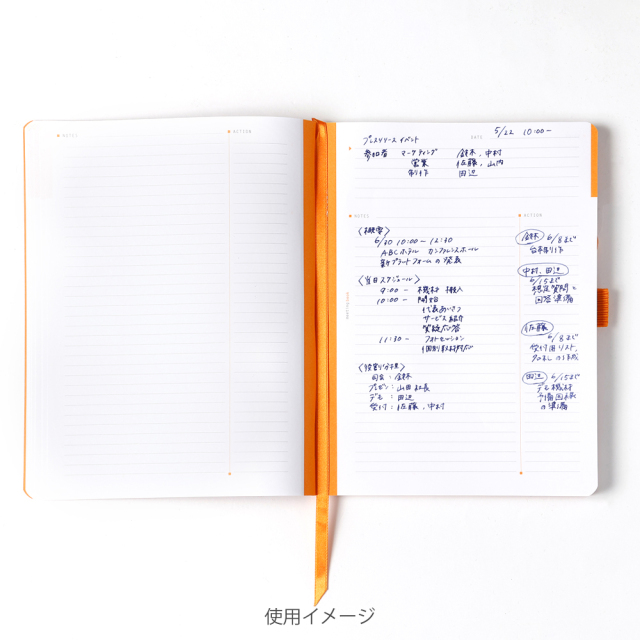 NOTES
ACTION
プレスリリース イベント
DATE 5/22 10:00-
参加者 マーケティング 鈴木、中村
営業 佐藤、山内
制作 田辺
NOTES
ACTION
〈概要〉
6/20 10:00 - 12:30
ABCホテル カンファレンスホール
新プラットフォームの発表
〈当日スケジュール〉
9:00 - 機材 搬入
10:00 - 開始
代表あいさつ
サービス紹介
質疑応答
11:30 - フォトセッション
個別取材対応
〈役割分担〉
司会:鈴木
プレゼン:山田社長
デモ:田辺
受付:佐藤、中村
鈴木 6/8まで
台本制作
中村、田辺
6/15まで
想定質問と
回答準備
佐藤
6/8まで
受付用リスト、
名札の作成
田辺 6/15まで
デモ機材
予備回線
の準備
使用イメージ